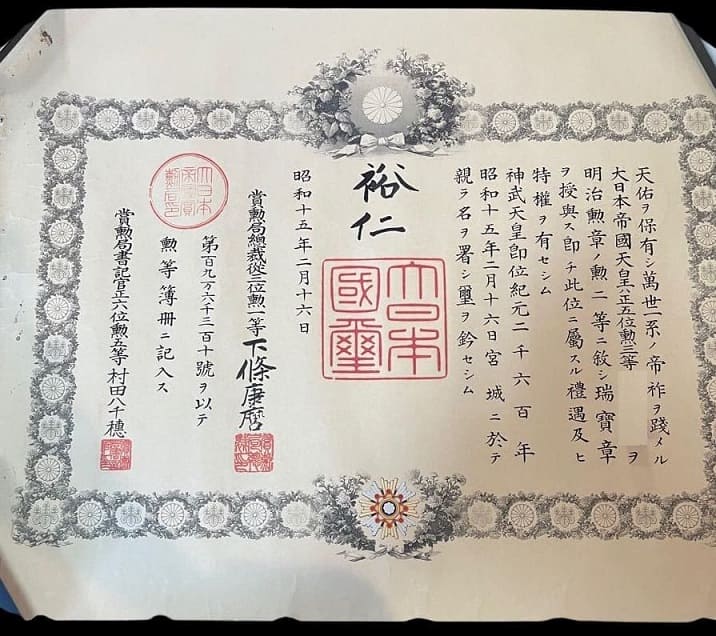 天佑ヲ保有シ萬世一系ノ帝祚ヲ踐メル
大日本帝國天皇ハ正五位勲三等 ヲ
明治勲章ノ勲二等ニ敍シ瑞寶章
ヲ授與ス即チ此位ニ屬スル禮遇及ヒ
特權ヲ有セシム
神武天皇即位紀元二千六百年
昭和十五年二月十六日宮城ニ於テ
親ラ名ヲ署シ璽ヲ鈐セシム
裕仁
大日本
國璽
昭和十五年二月十六日
賞勲局總裁從三位勲一等下條康麿
第百九万六千三百十號ヲ以テ
勲等簿冊ニ記入ス
賞勲局書記官正六位勲五等村田八千穂